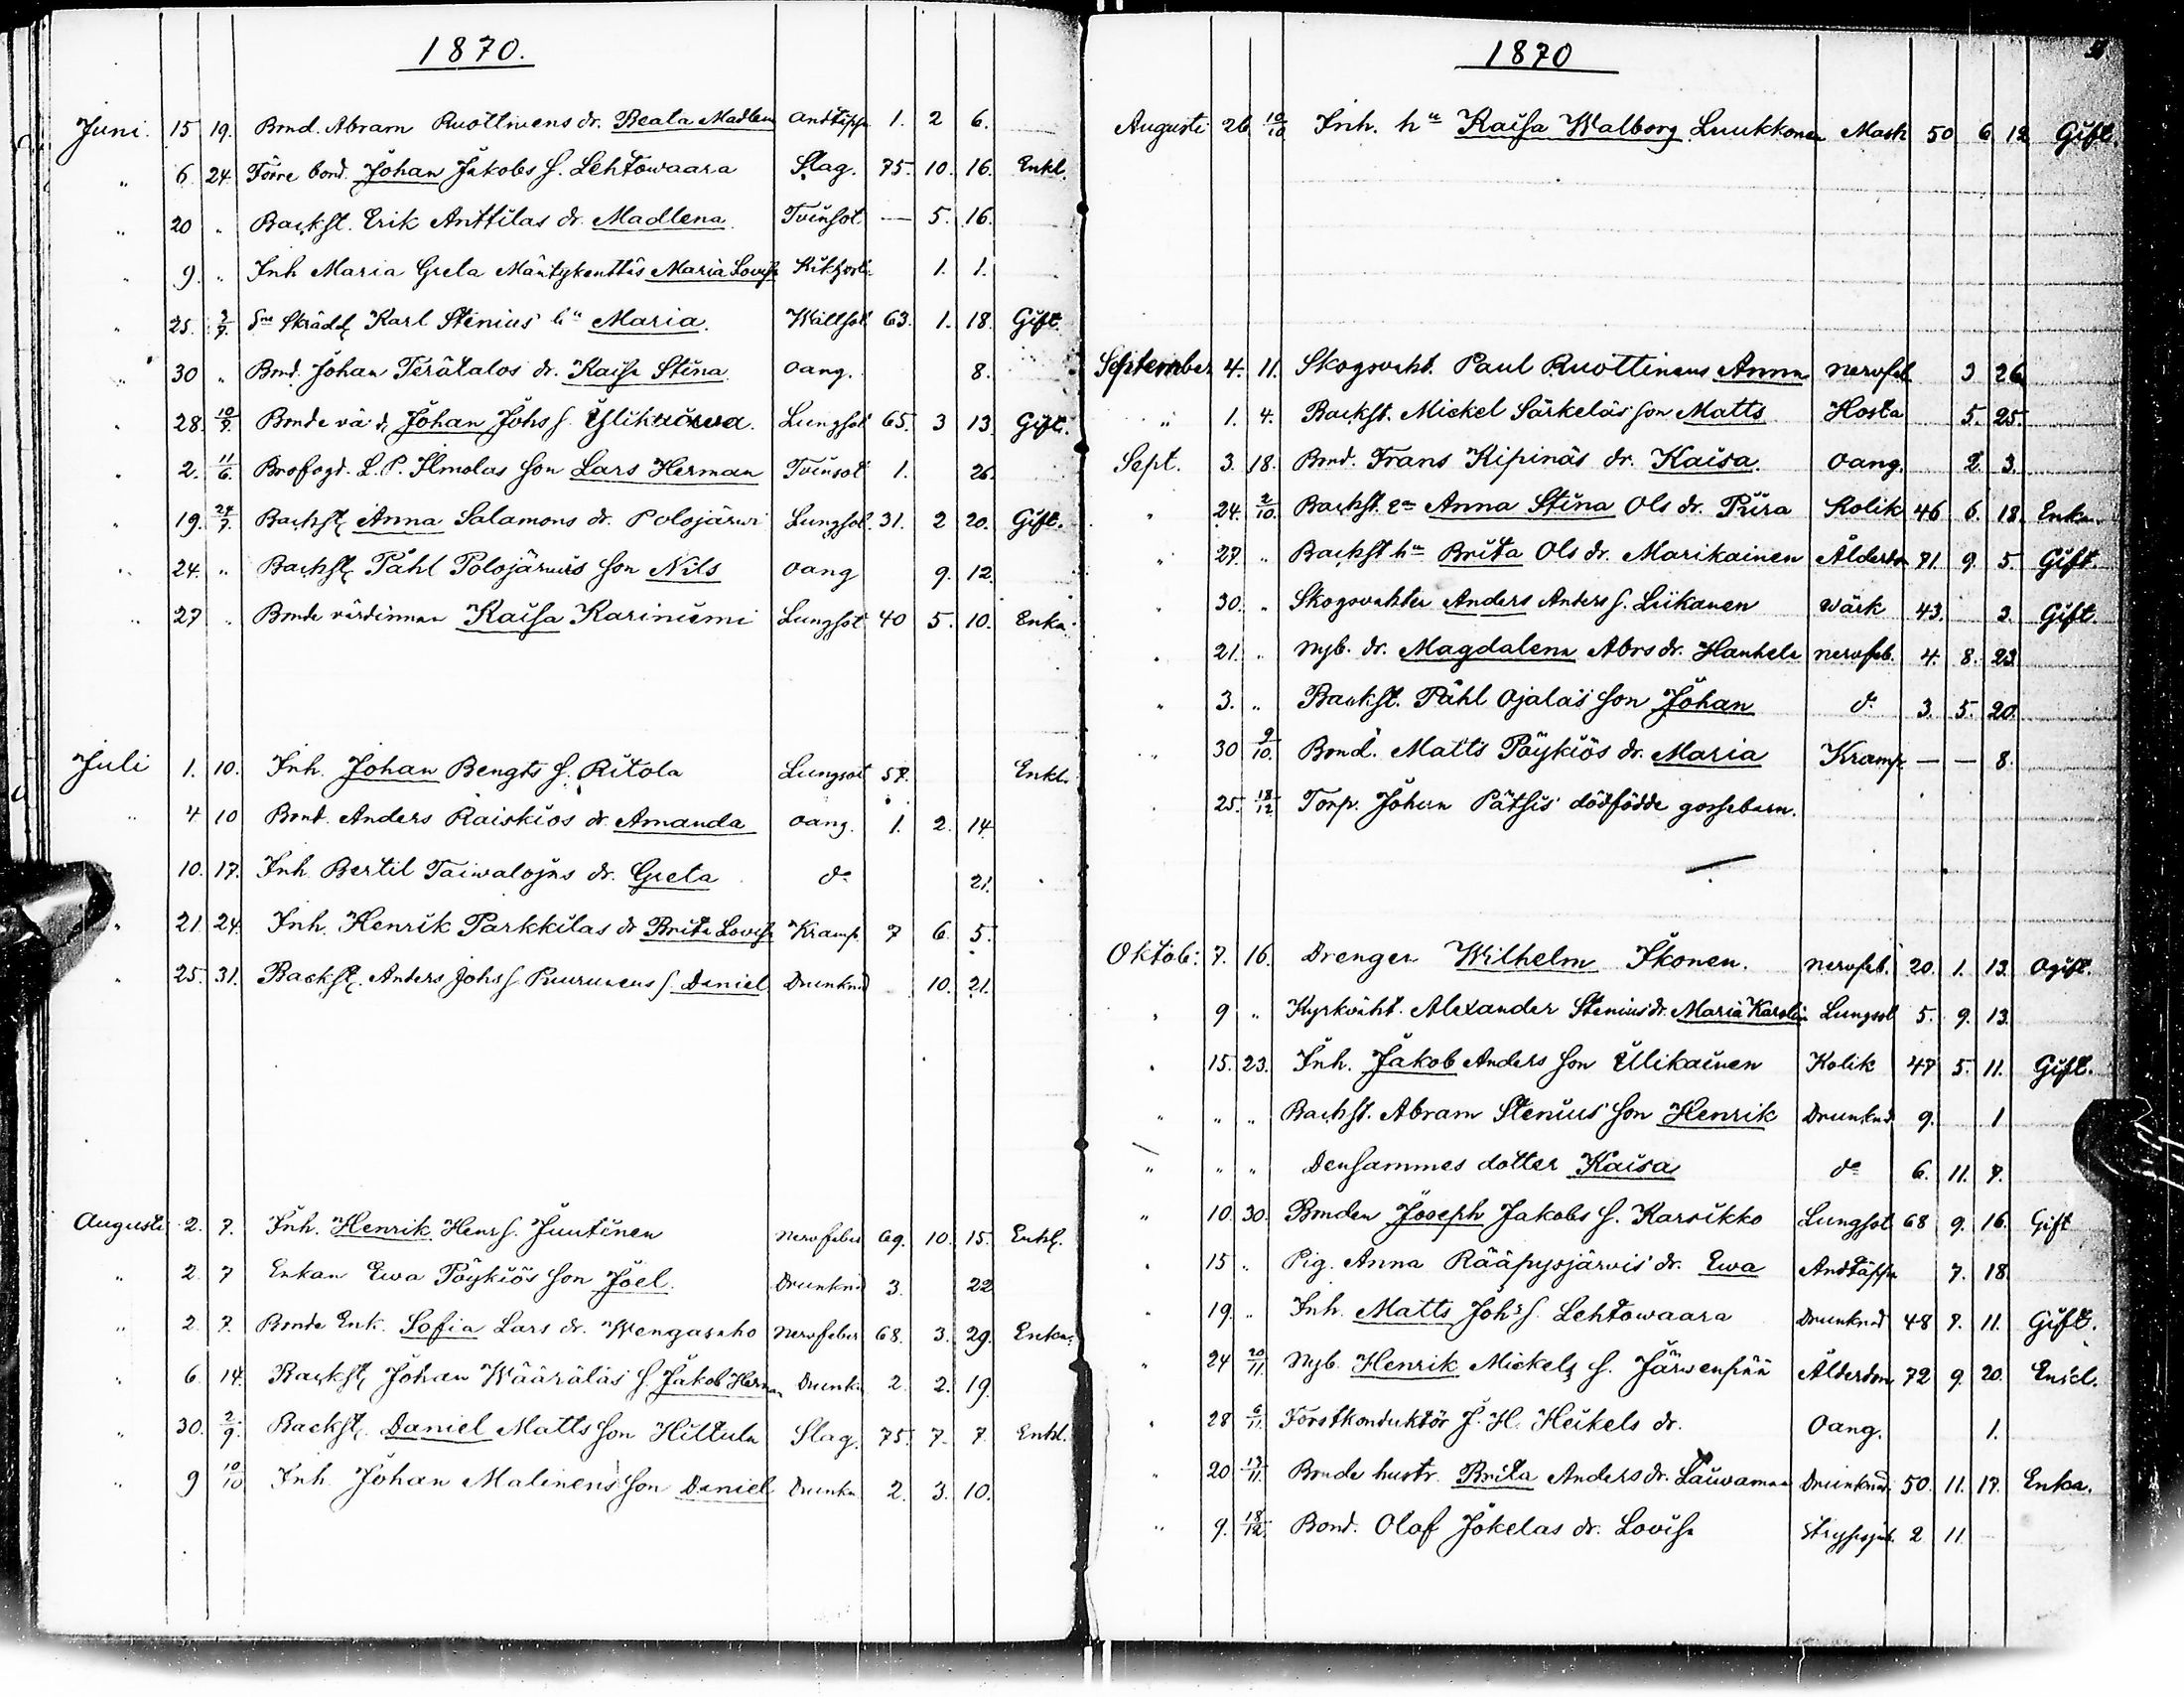 1870.
Juni. 15 19. Bond. Abram Ruottinens dr. Beata Madlena Andtäppa 1. 2 6.
" 6. 24. Förre bond. Johan Jakobs s. Lehtowaara Slag. 75. 10. 16. Enkl.
" 20 " Backst. Erik Anttilas dr. Madlena Tvinsot — 5. 16.
" 9. " Inh Maria Greta Mäntykenttäs Maria Lovisa Kikhosta 1. 1.
" 25. 3/7. Skrädd. Karl Stenius hu Maria. Wattsot 63. 1. 18. Gift.
" 30 " Bond. Johan Perätalos dr. Kaisa Stina oang. 8.
" 28. 10/7. Bonde Johan Johs s. Ylikärwa. Lungsot 65. 3 13. Gift.
" 2. 11/6. Brofogd. L. P. Ilmolas son Lars Herman Tvinsot 1. 26.
" 19. 24/7. Backst. Anna Salamons dr. Polojärwi Lungsot. 31. 2 20. Gift.
" 24. " Backst. Påhl Polojärwis son Nils oang 9. 12.
" 27 " Bonde värdinnan Kaisa Kariniemi Lungsot 40 5. 10. Enka.
Juli 1. 10. Inh. Johan Bengts s. Ritola Lungsot 57. Enkl.
" 4 10 Bond. Anders Raiskios dr. Amanda oang. 1. 2. 14
10. 17. Inh. Bertil Taiwalojas dr. Greta do 21.
" 21. 24. Inh. Henrik Parkkilas dr Brita Lovisa Kramp. 7 6. 5.
" 25. 31. Backst. Anders Johs s. Puurunens s. Daniel Drunknad 10. 21.
Augusti 2. 7. Inh. Henrik Henrs. Juutinen Nervfeber 69. 10. 15. Enkl.
" 2. 7 Enkan Ewa Pöykiös son Joel. Drunknad 3. 22
" 2. 7. Bonde Enk. Sofia Lars dr. Wengasaho Nervfeber 68. 3. 29. Enka.
" 6. 14. Backst. Johan Wäärälās s. Jakob Herman Drunkn 2. 2. 19.
" 30. 2/9. Backst. Daniel Matts son Hiltula Slag. 75. 7. 7 Enkl.
" 9 10/10 Inh. Johan Malinens son Daniel Drunkn 2. 3. 10.
1870
Augusti 26. 10/10. Inh. hu Kaisa Walborg Luukkonen Mask 50 6. 12 Gift.
September 4. 11. Skogsvakt. Paul Ruottinens Anna nervfeb. 3 26
" 1. 4. Backst. Mickel Särkeläs son Matts Hosta 5. 25.
Sept. 3. 18. Bond. Frans Kipinäs dr. Kaisa. oang. 2 3.
" 24. 2/10. Backst. Anna Stina Ols dr. Piira Kolik 46 6. 18. Enka.
" 27. " Backst hu Brita Ols dr. Marikainen Ålderdom 71. 9. 5. Gift
" 30. " Skogsvakten Anders Anders s. Liikanen wärk 43. 3. Gift.
" 21. " nyb. dr. Magdalena Abrs dr. Hankela nervfeb. 4. 8. 23.
" 3. " Backst. Påhl Ojalas son Johan do 3. 5. 20.
" 30 9/10. Bond. Matts Pöykiös dr. Maria Kramp — — 8.
" 25. 18/12 Torp. Johan Pätsis dödfödde gossebarn.
Oktob: 7. 16. Drengen Wilhelm Ikonen. nervfeb. 20. 1. 13. Ogift.
" 9 " Kyrkväkt. Alexander Stenius dr. Maria Karolin Lungsot 5. 9. 13.
" 15. 23. Inh. Jakob Anders son Ulikainen Kolik 47 5. 11. Gift.
" " " Backst. Abram Stenius son Henrik Drunknd 9. 1
" " " Densammes dotter Kaisa do 6. 11. 7.
" 10. 30. Bonden Joseph Jakobs s. Karsikko Lungsot 68 9. 16. Gift
" 15 " Pig. Anna Rääpysjärwis dr. Ewa Andtäppa 7. 18.
" 19. " Inh. Matts Johs s. Lehtowaara Drunknad 48 7. 11. Gift.
" 24 20/11. nyb. Henrik Mickels s. Järwenpää Ålderdom 72 9. 20. Enkl.
" 28 6/11. Forstkonduktör J. H. Heikels dr. Oang. 1.
" 20 13/11. Bonde hustr. Brita Anders dr. Lauwamaa Drunknad. 50. 11. 17. Enka.
" 9. 18/12. Bond. Olof Jokelas dr. Lovisa Strypsjuk. 2 11.